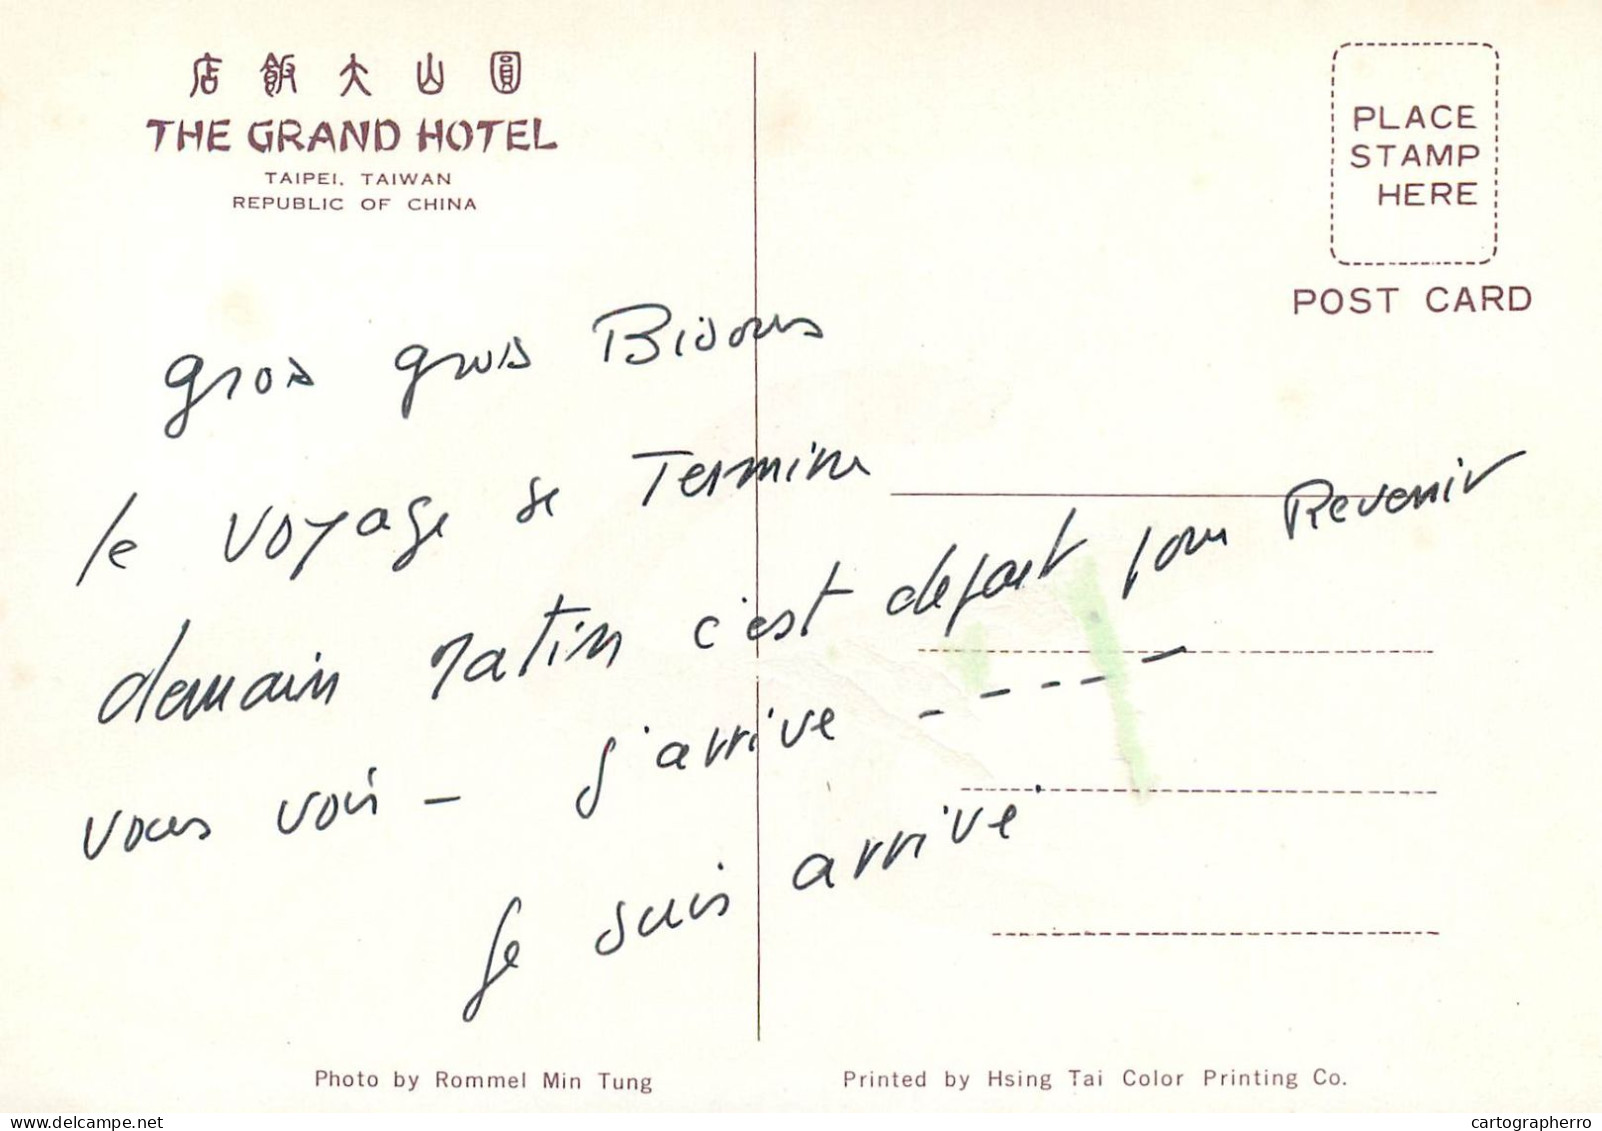 店飯大山圓
THE GRAND HOTEL
TAIPEI. TAIWAN
REPUBLIC OF CHINA
PLACE
STAMP
HERE
POST CARD
gros gros Bisous
le voyage se Termine
demain matin c'est depart pour Revenir
vous voir – J'arrive - - - - -
Je suis arrivé
Photo by Rommel Min Tung
Printed by Hsing Tai Color Printing Co.
delcampe.net
cartographerro